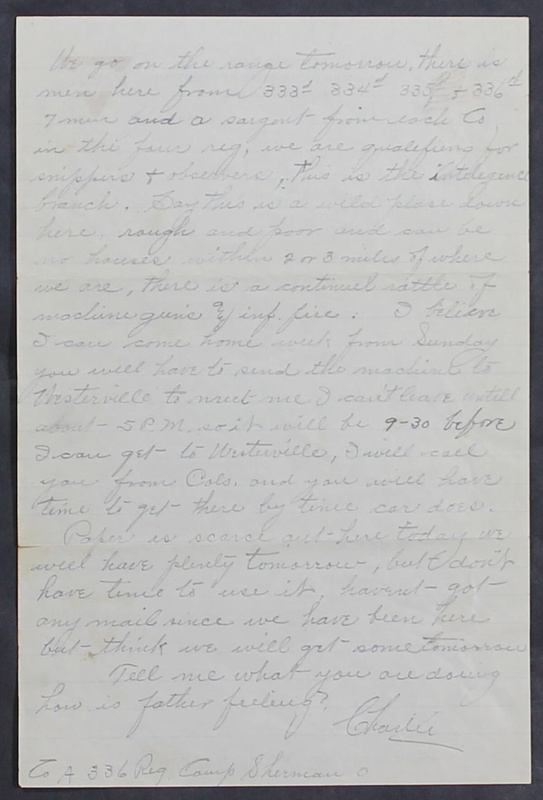 We go on the range tomorrow, there is
men here from 333d 334d 335th & 336th
7 men and a sargent from each Co
in the four reg, we are qualifing for
snippers & observers, this is the intelegence
branch. Say this is a wild place down
here, rough and poor and can be
no houses within 2 or 3 miles of where
we are, there is a continuel rattle of
machine guns & inf. fire. I believe
I can come home week from Sunday
you will have to send the machine to
Westerville to meet me I can't leave untill
about 5 P.M. so it will be 9-30 before
I can get to Westerville, I will call
you from Cols. and you will have
time to get there by time car does.
Paper is scarce out here today we
will have plenty tomorrow, but I don't
have time to use it, havent got
any mail since we have been here
but think we will get some tomorrow
Tell me what you are doing
how is father feeling?
Charlie
Co A 336 Reg. Camp Sherman O